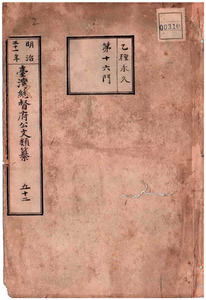 00310
乙種永久
第十六門
明治三十一年
臺灣總督府公文類纂
五十二
2